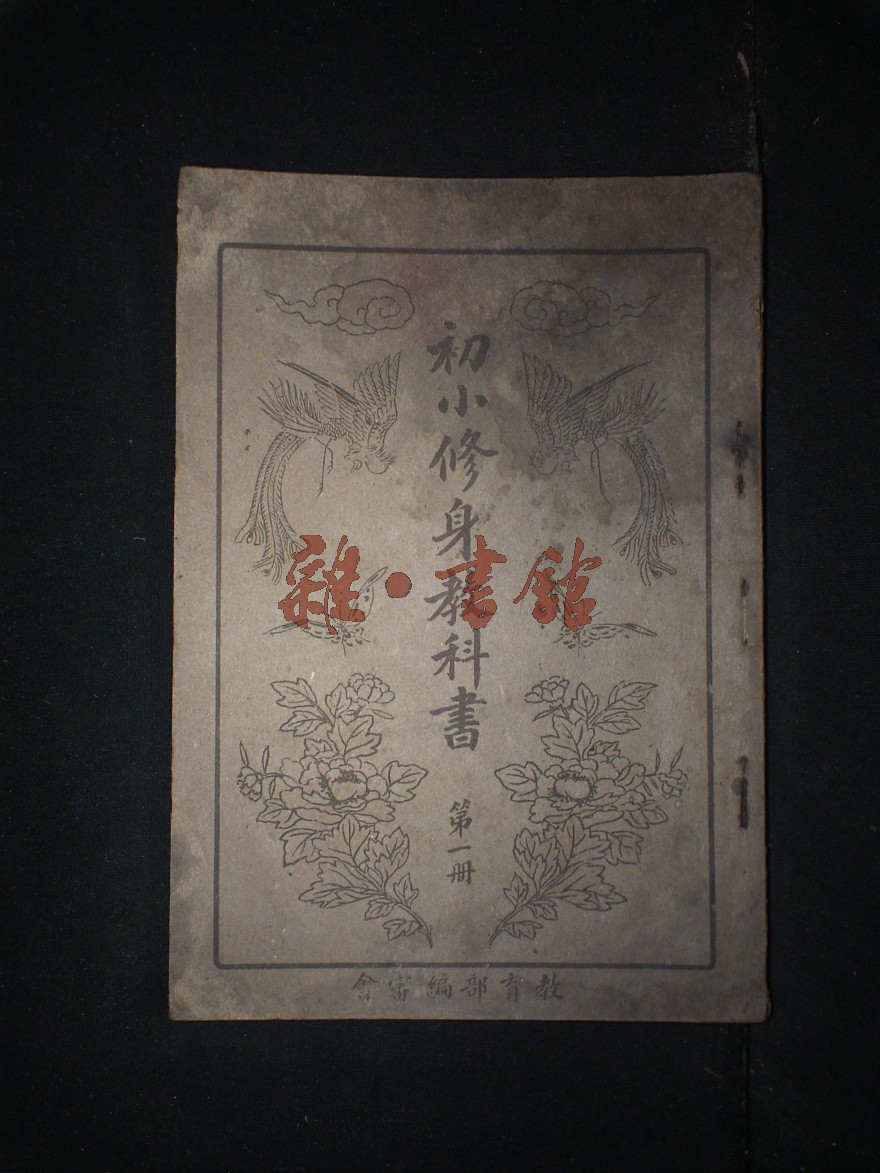 初小修身教科書
第一冊
教育部編審會
雜·書館